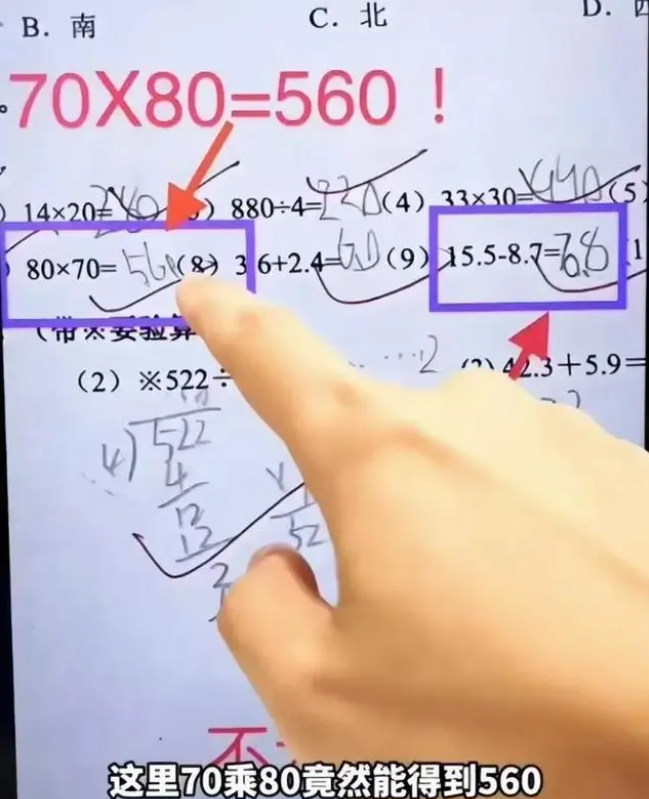 B. 南 C. 北 D.
70X80=560！
14×20=280 ) 880÷4=220 (4) 33×30= (5)
80×70=560 (8) 3.6+2.4=6.0 (9) 15.5-8.7=6.8 (1
(带※要验算
(2) ※522÷ ……2 (2) 42.3+5.9=
4 522
4
12
12
2
52
不
这里70乘80竟然能得到560